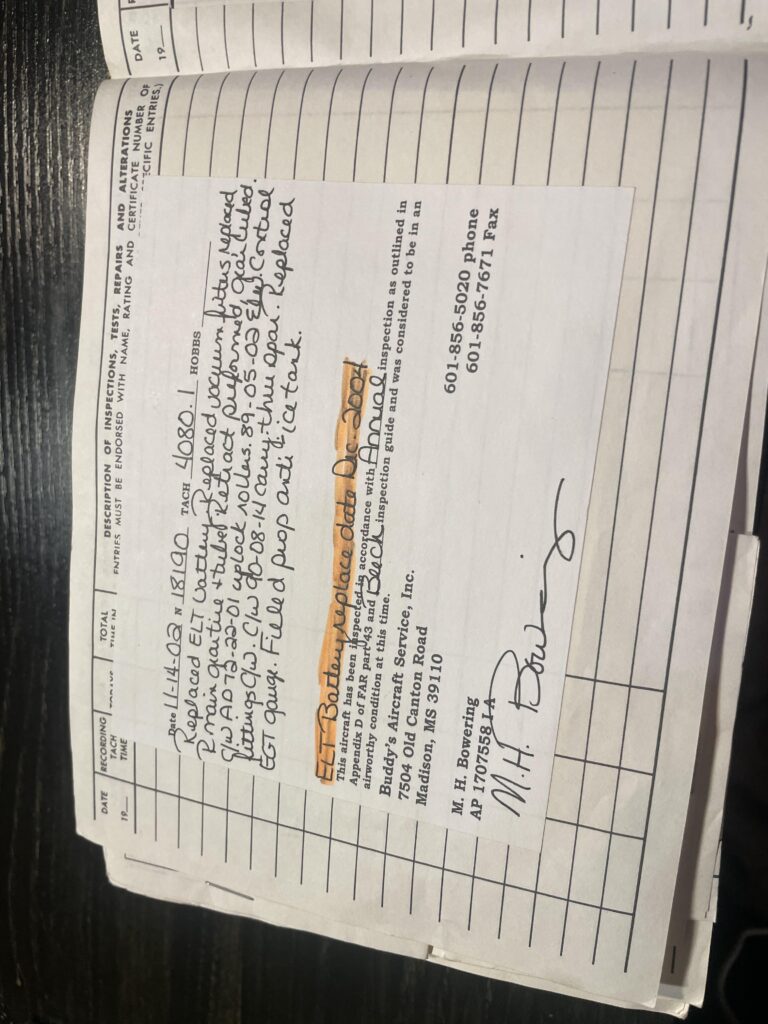 DATE
19
DATE
19
RECORDING
TACH
TIME
TOTAL
TIME IN
DESCRIPTION OF INSPECTIONS, TESTS, REPAIRS AND ALTERATIONS
ENTRIES MUST BE ENDORSED WITH NAME, RATING AND CERTIFICATE NUMBER OF
SPECIFIC ENTRIES.)
Date 11-14-02 N 18190 TACH 4080.1 HOBBS
Replaced ELT battery. Replaced vacuum filters, replaced
R main gear tire & tube. Retract preformed gear lubed.
C/W AD 72-22-01 uplock rollers. 89-05-02 Fuel Control
fittings C/W. C/W 90-08-14 carry-thru spar. Replaced
EGT gauge. Filled prop anti-ice tank.
ELT Battery replace date Dec. 2004
This aircraft has been inspected in accordance with Annual inspection as outlined in
Appendix D of FAR part 43 and Beech inspection guide and was considered to be in an
airworthy condition at this time.
Buddy's Aircraft Service, Inc.
7504 Old Canton Road
Madison, MS 39110
601-856-5020 phone
601-856-7671 Fax
M. H. Bowering
AP 1707558 IA
M.H. Bowering